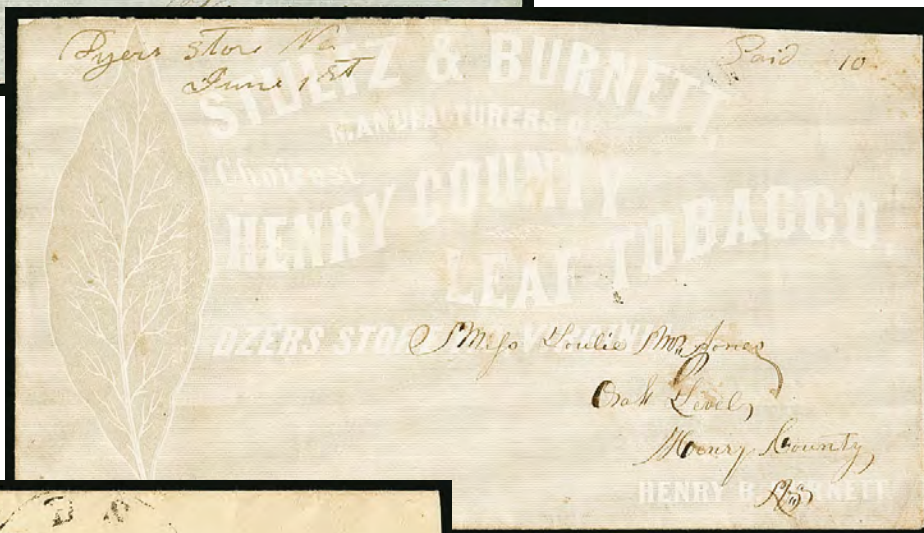 Dyers Store Va
June 1st
Paid 10
STULTZ & BURNETT,
MANUFACTURERS OF
Choicest
HENRY COUNTY
LEAF TOBACCO,
STORE VIRGINIA
Miss Jones
Oak Level,
Henry County,
Va
HENRY B. BURNETT